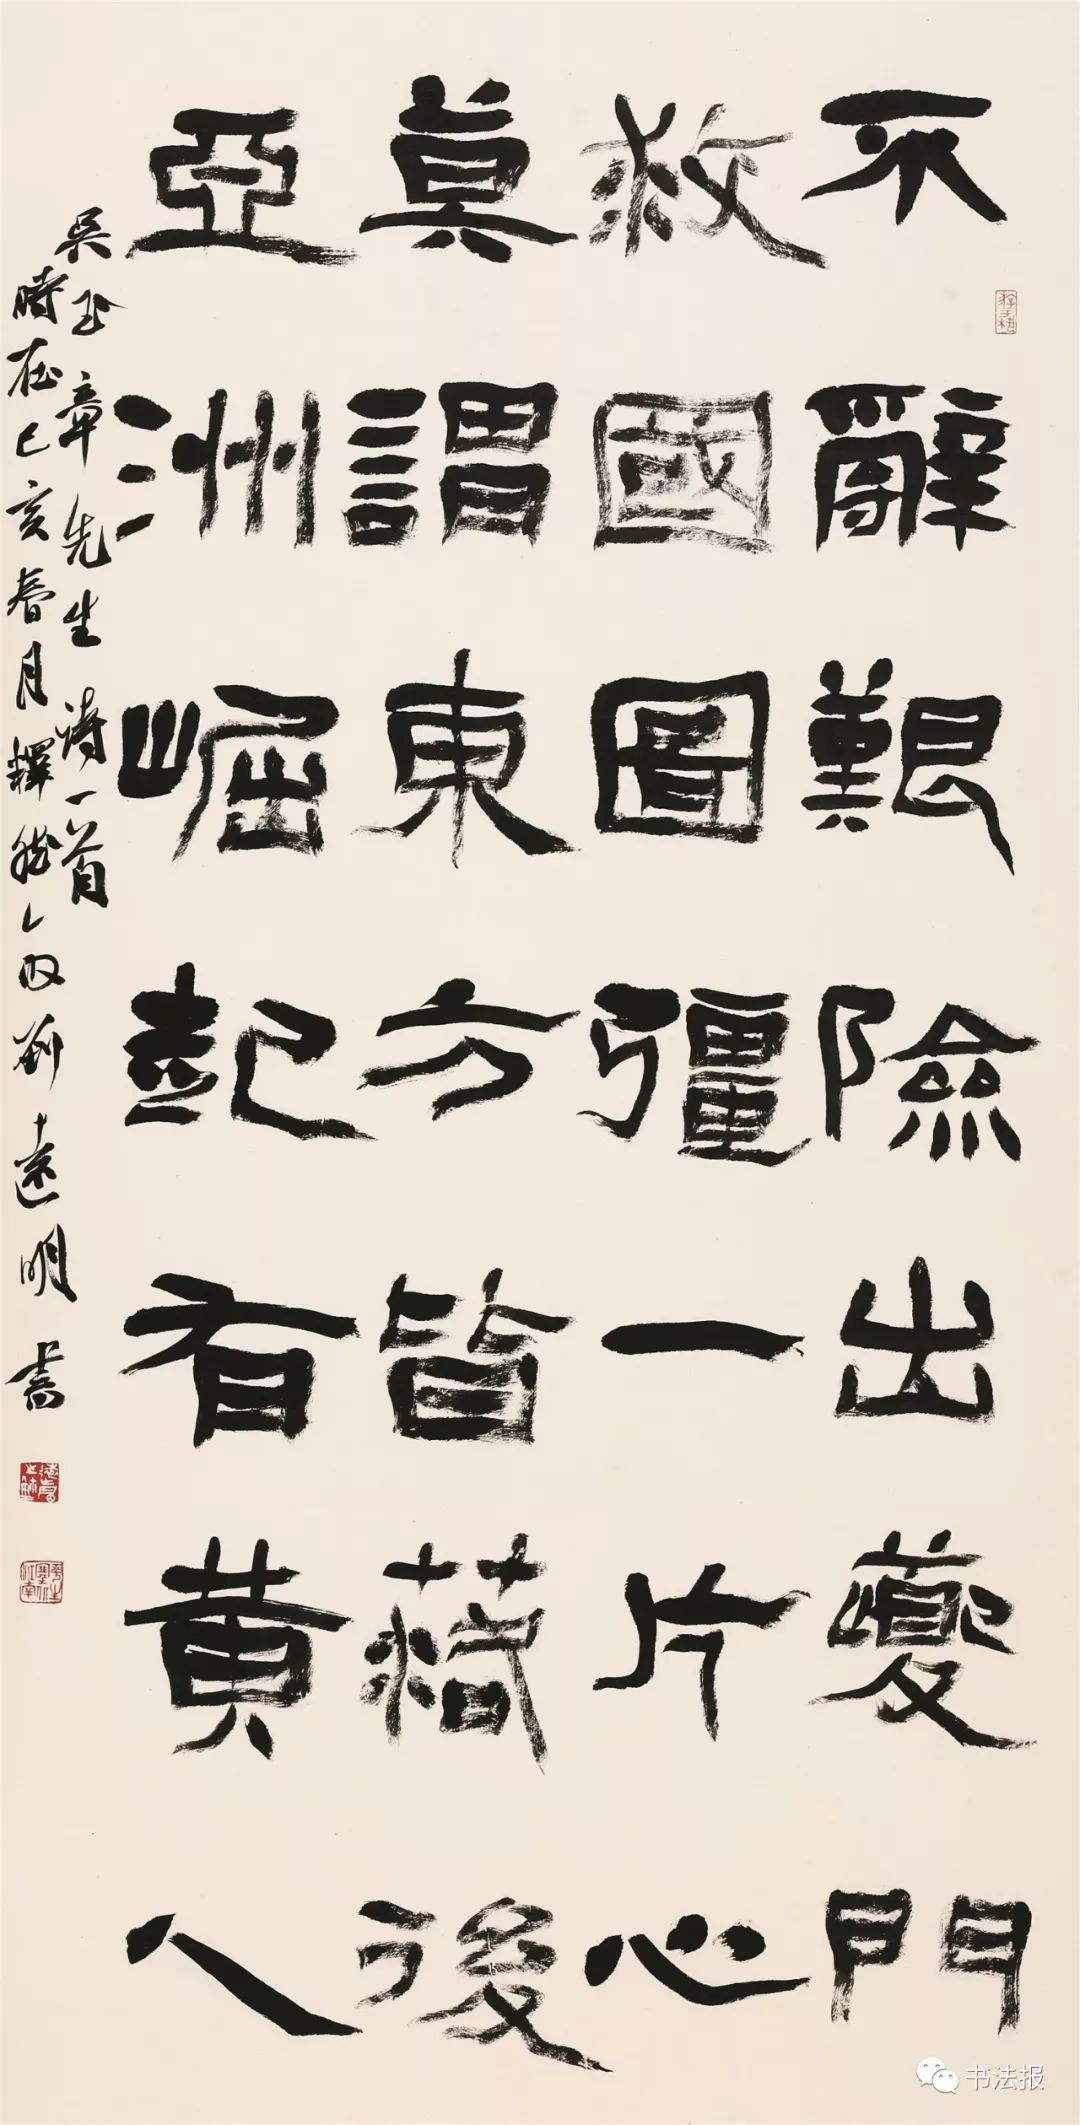 不辭艱險出夔門
救國圖彊一片心
莫謂東方皆落後
亞洲崛起有黄人
吳玉章先生詩一首
時在己亥春月劉遠明書
书法报